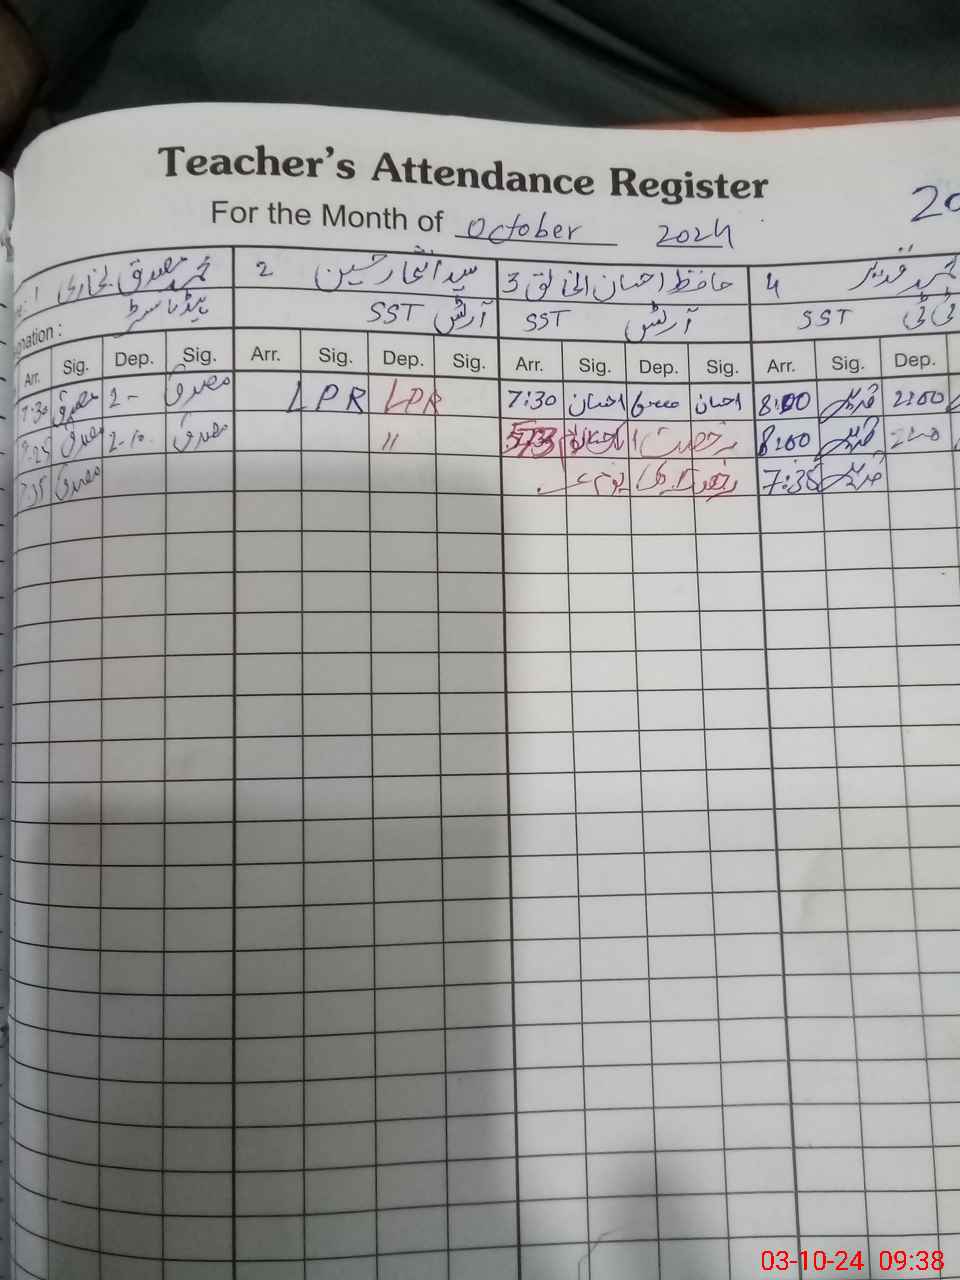 Teacher's Attendance Register
For the Month of October 2024 20
1 محمد مصدق بخاری 2 سید افتخار حسین 3 حافظ احسان الخالق 4 محمد
nation : ہیڈ ماسٹر SST آرٹس SST آرٹس SST ٹی
Arr. Sig. Dep. Sig. Arr. Sig. Dep. Sig. Arr. Sig. Dep. Sig. Arr. Sig. Dep.
7:30 مصدق 2- مصدق LPR LPR 7:30 احسان احسان 8:00 2:00
7:25 مصدق 2-10 مصدق " رخصت 8:00 2:00
7:35 مصدق 7:35
03-10-24 09:38